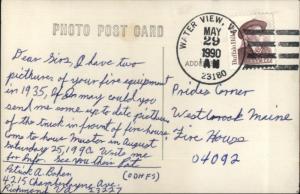 PHOTO POST CARD
WATER VIEW, VA
MAY
29
1990
AM
23180
ADDRE
Buffalo Bill Cody
Dear Sirs, I have two
pictures of your fire equipment
in 1935, If so may could you
send me some up to date pictures
of the truck in front of fire house
Coms to house Muster in August
Saturday 25, 1990. Write me
for Info. See you then Pat.
Patrick A. Bohen (ODHFS)
4215 Chamberlayne Ave
Richmond
Prides Corner
Westbrook Maine
Fire House
04092